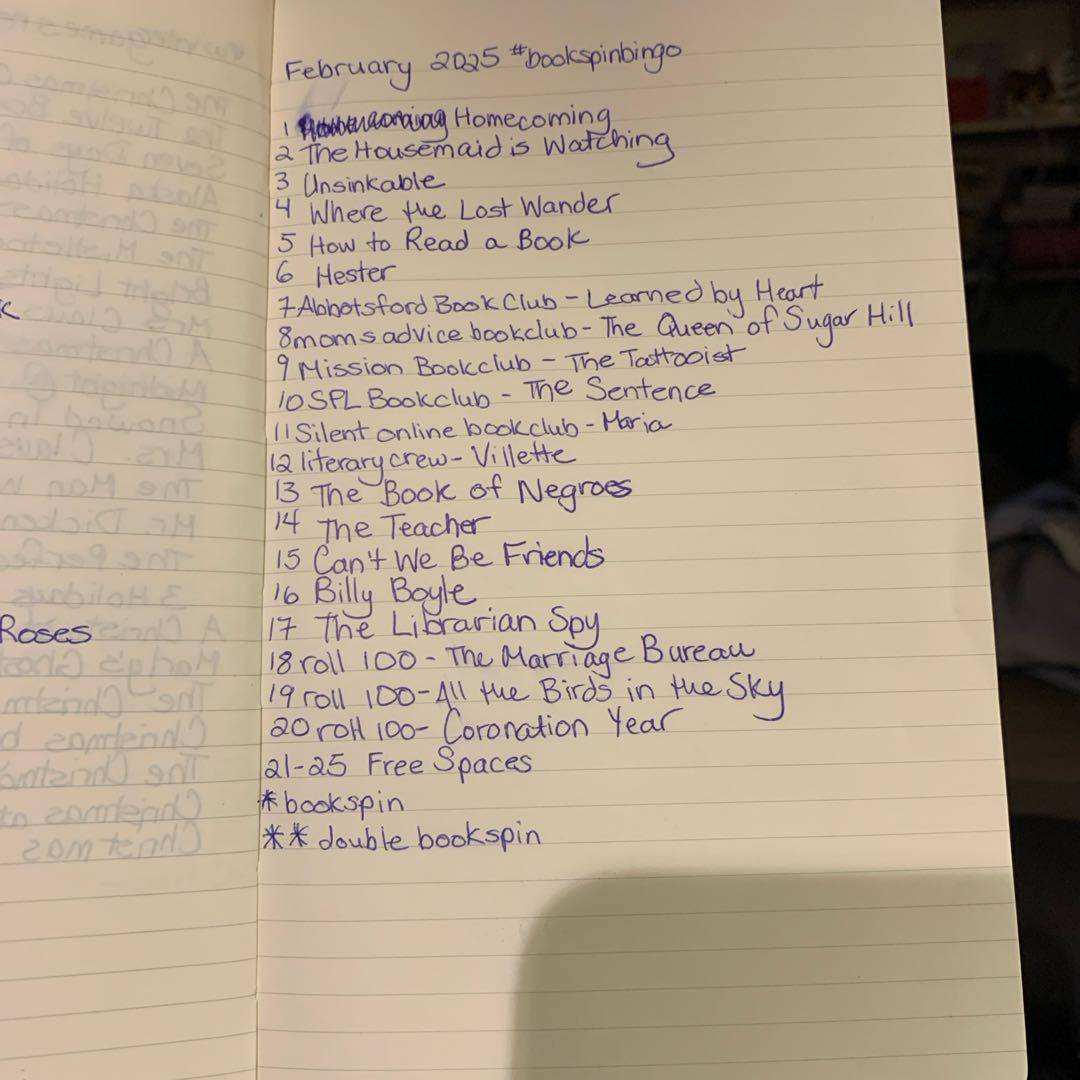 February 2025 #bookspinbingo
1 Homecoming
2 The Housemaid is Watching
3 Unsinkable
4 Where the Lost Wander
5 How to Read a Book
6 Hester
7 Abbotsford Book Club - Learned by Heart
8 moms advice bookclub - The Queen of Sugar Hill
9 Mission Bookclub - The Tattooist
10 SPL Bookclub - The Sentence
11 Silent online bookclub - Maria
12 literary crew - Villette
13 The Book of Negroes
14 The Teacher
15 Can't We Be Friends
16 Billy Boyle
17 The Librarian Spy
18 roll 100 - The Marriage Bureau
19 roll 100 - All the Birds in the Sky
20 roll 100 - Coronation Year
21-25 Free Spaces
* bookspin
** double bookspin
Roses